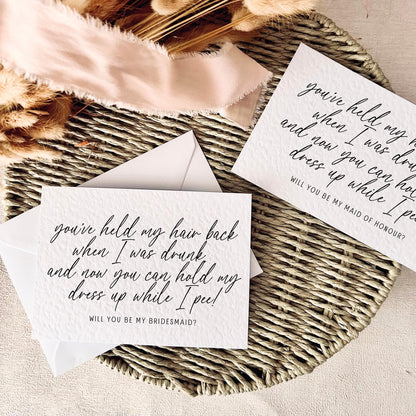 you've held my hair back
when I was drunk,
and now you can hold my
dress up while I pee!
WILL YOU BE MY BRIDESMAID?
you've held my
when I was dru
and now you can ho
dress up while I
WILL YOU BE MY MAID OF HONOUR?